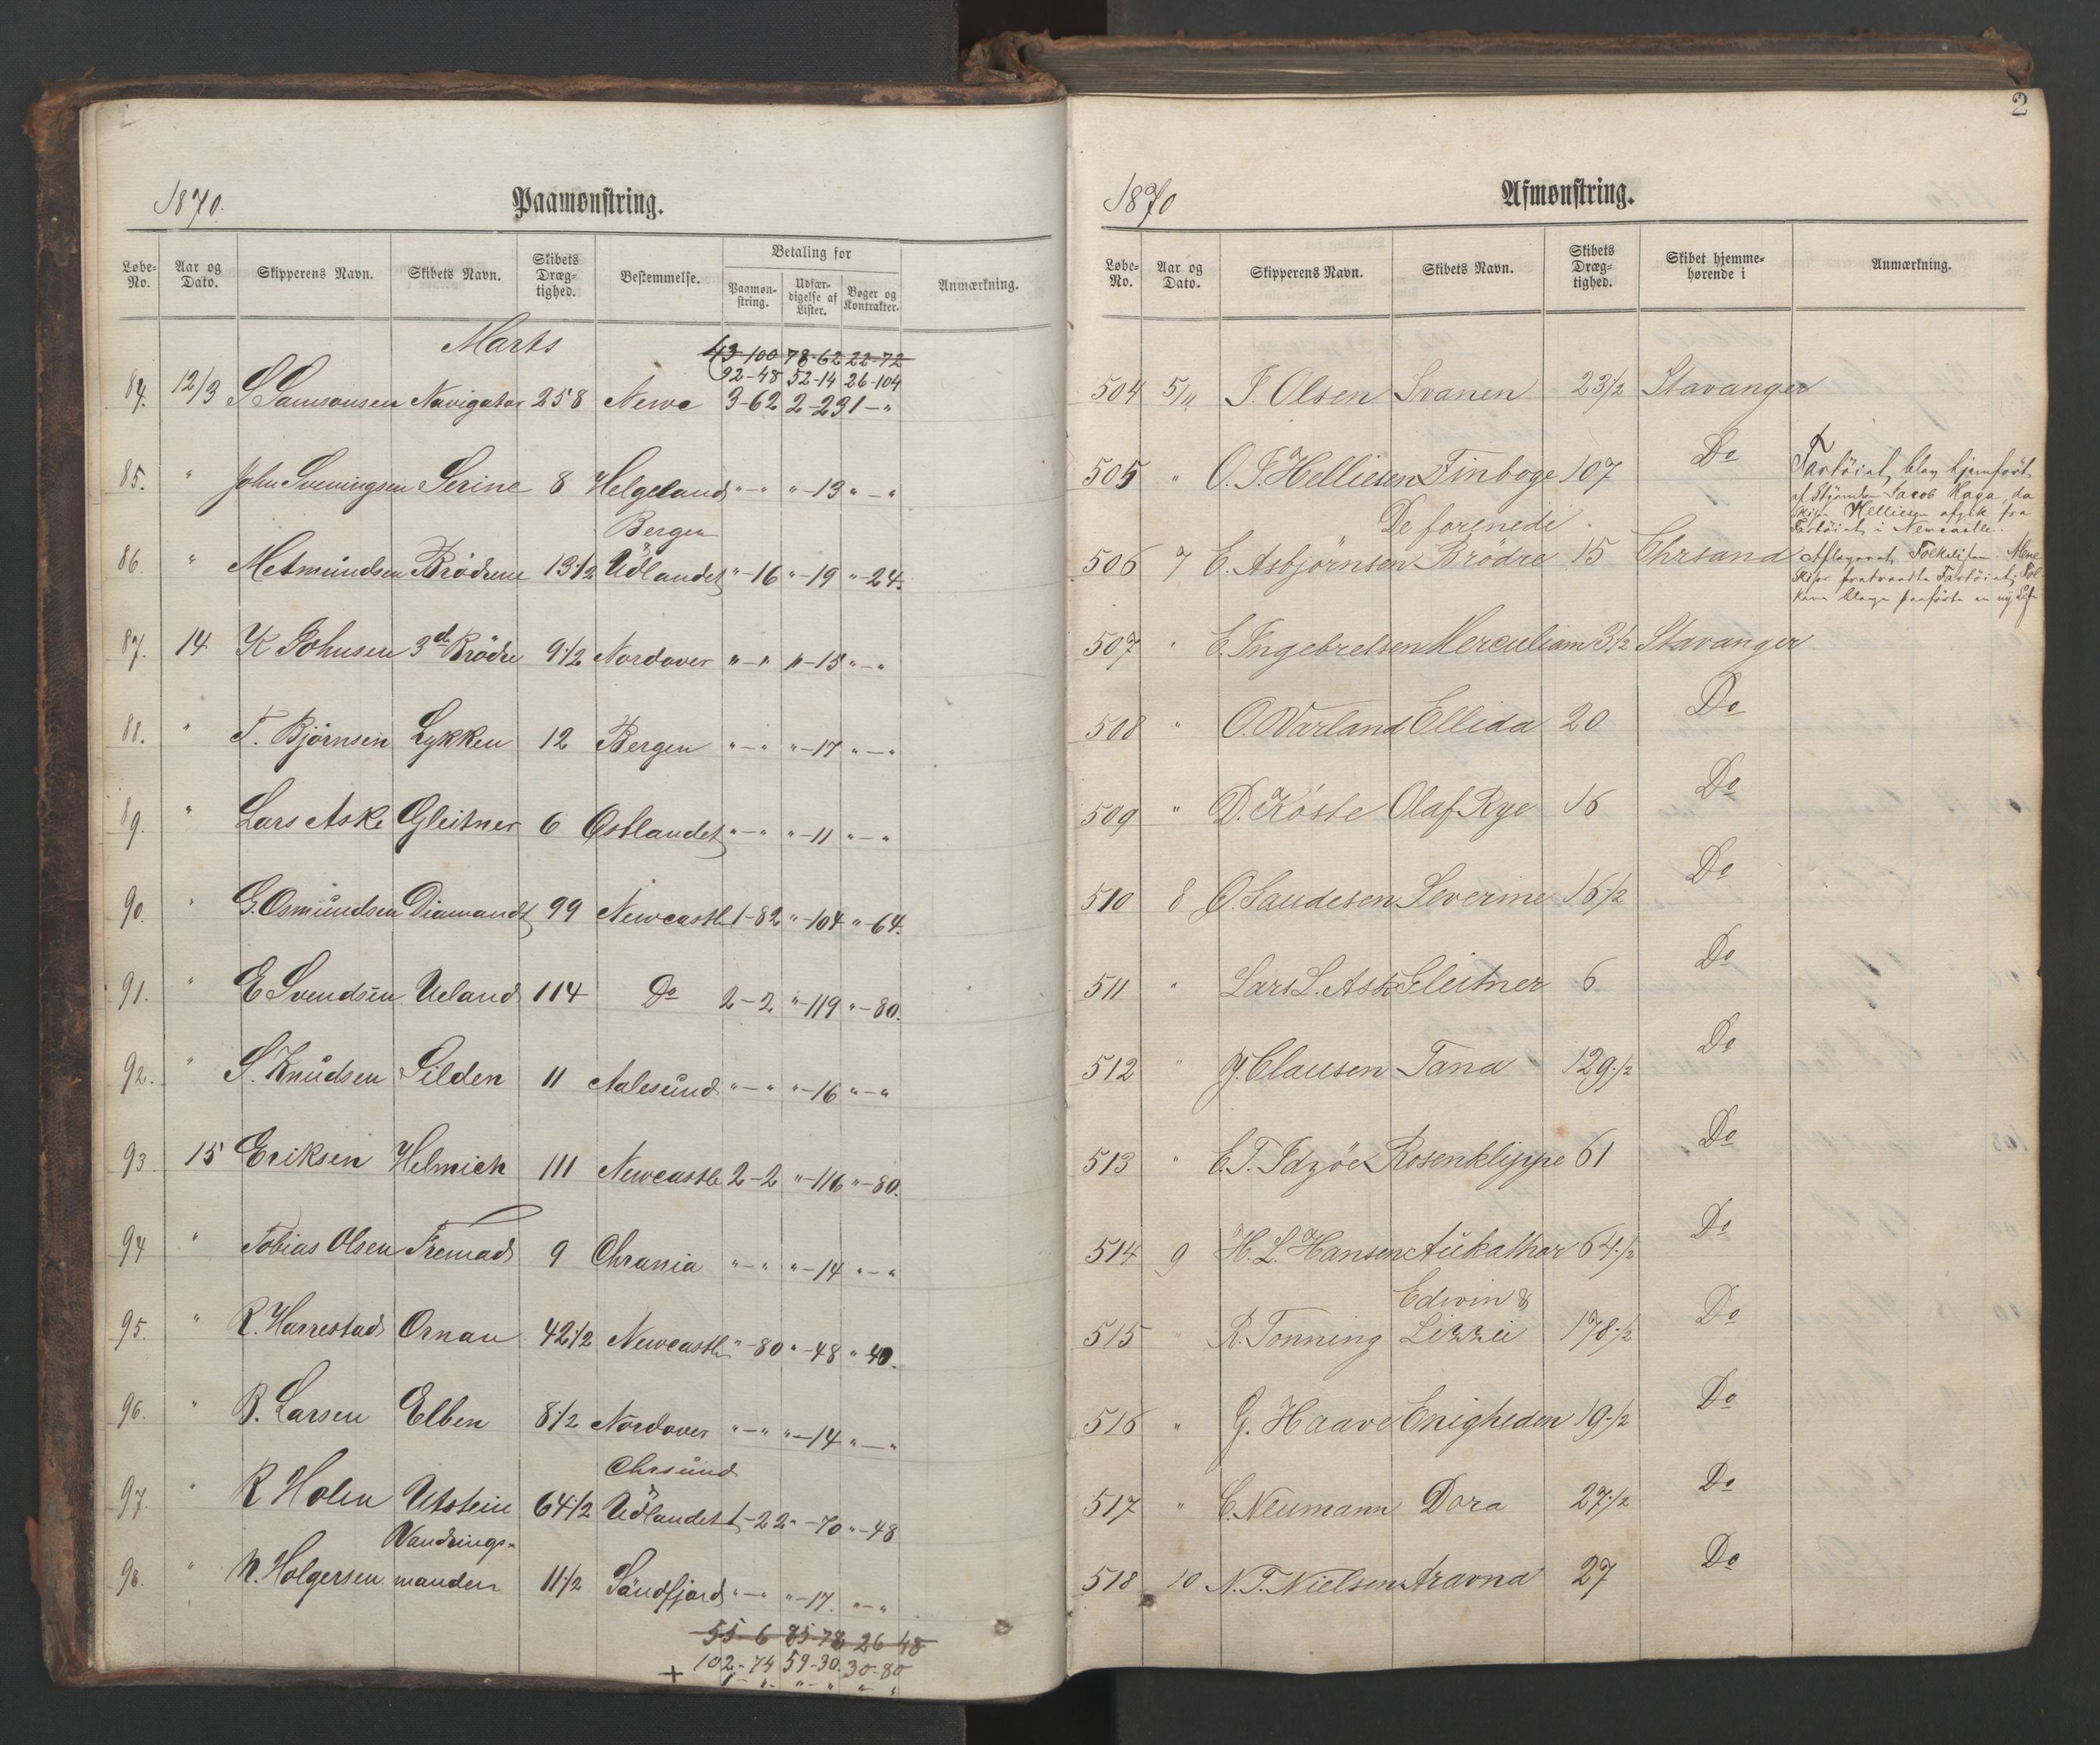 1870.
Paamønstring.
Løbe-No. Aar og Dato. Skipperens Navn. Skibets Navn. Skibets Dræg-tighed. Bestemmelse. Betaling for Paamøn-string. Udfær-digelse af Lister. Bøger og Kontrakter. Anmærkning.
Marts
43-100 78-62 22-72
92-48 52-14 26-104
84. 12/3 S Samsonsen Navigator 258 Newc 3-62 2-23 1-"
85. " John Sveningsen Serine 8 Helgeland "-" "-13 "-"
Bergen
86. " M Amundsen Brødrene 13 1/2 & Udlandet "-16 "-19 "-24.
87. 14 K Johnsen 3de Brødre 9 1/2 Nordover "-" "-15 "-"
88. " T. Bjørnsen Lykken 12 Bergen "-" "-17 "-"
89. " Lars Aske Gleitner 6 Østlandet "-" "-11 "-"
90. " G. Osmundsen Diamandt 99 Newcastle 1-82 "-104 "-64.
91. " E Svendsen Ueland 114 Do 2-2 "-119 "-80.
92. " S. Knudsen Silden 11 Aalesund "-" "-16 "-"
93. 15 Eriksen Helmich 111 Newcastle 2-2 "-116 "-80.
94 " Tobias Olsen Fremad 9 Chrania "-" "-14 "-"
95. " R. Harrestad Ornan 42 1/2 Newcastle "-80 "-48 "-40.
96. " B. Larsen Elben 8 1/2 Nordover "-" "-14 "-"
Chrsund
97. " R Holen Utstein 64 1/2 & Udlandet 1-22 "-70 "-48
Vandrings-
98. " N. Holgersen manden 11 1/2 Söndfjord "-" "-17. "-"
55-6 85-78 26-48
102-74 59-30. 30-80
+ 1-" "-" "-"
2
1870
Afmønstring.
Løbe-No. Aar og Dato. Skipperens Navn. Skibets Navn. Skibets Dræg-tighed. Skibet hjemme-hørende i Anmærkning.
504 5/11 J. Olsen Svanen 23 1/2 Stavanger
505 " O. T. Helliesen Finboge 107 Do Fartöiet blev hjemført
af Styrmden Jacob Haga, da
Skipr Helliesen afgik fra
Fartöiet i Newcastle.
De forenede
506 7 E. Asbjørnsen Brödre 15 Chrsand
Skipr fratraadte Fartöiet;
507 " E. Ingebretsen Merculiam 3 1/2 Stavanger
508 " O. Varland Ellida 20 Do
509 " D. Røste Olaf Rye 16 Do
510 8 O. Saudesen Severine 16 1/2 Do
511 " Lars L. Ask Gleitner 6 Do
512 " J. Clausen Tana 129 1/2 Do
513 " E. T. Idzöe Rosenklippe 61 Do
514 9 H. L. Hansen Aukathor 64 1/2 Do
Edwin &
515 " R. Tonning Lizzie 178 1/2 Do
516 " G. Haave Enigheden 19 1/2 Do
517 " C. Neumann Dora 27 1/2 Do
518 10 N. T. Nielsen Aravna 27 Do